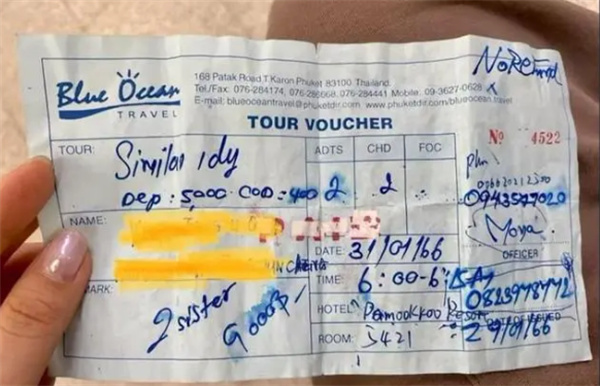 Blue Ocean
TRAVEL
168 Patak Road,T.Karon Phuket 83100 Thailand.
Tel./Fax. 076-284174, 076-286668, 076-284441 Mobile. 09-3627-0628 x
E-mail: blueoceantravel@phuketdir.com www.phuketdir.com/blueocean.travel
No Refund
TOUR VOUCHER
Nº 4522
TOUR:
Similan 1dy
Dep : 5,000 COD : 400
ADTS CHD FOC
2 2
0943527020
Moya
OFFICER
NAME:
DATE: 31/01/66
TIME: 6:00-6:15 AM
0823978772
HOTEL Pamookkoo Resort
DATE OF ISSUED
29/01/66
ROOM: 3421
MARK:
2 sister
9000B/-